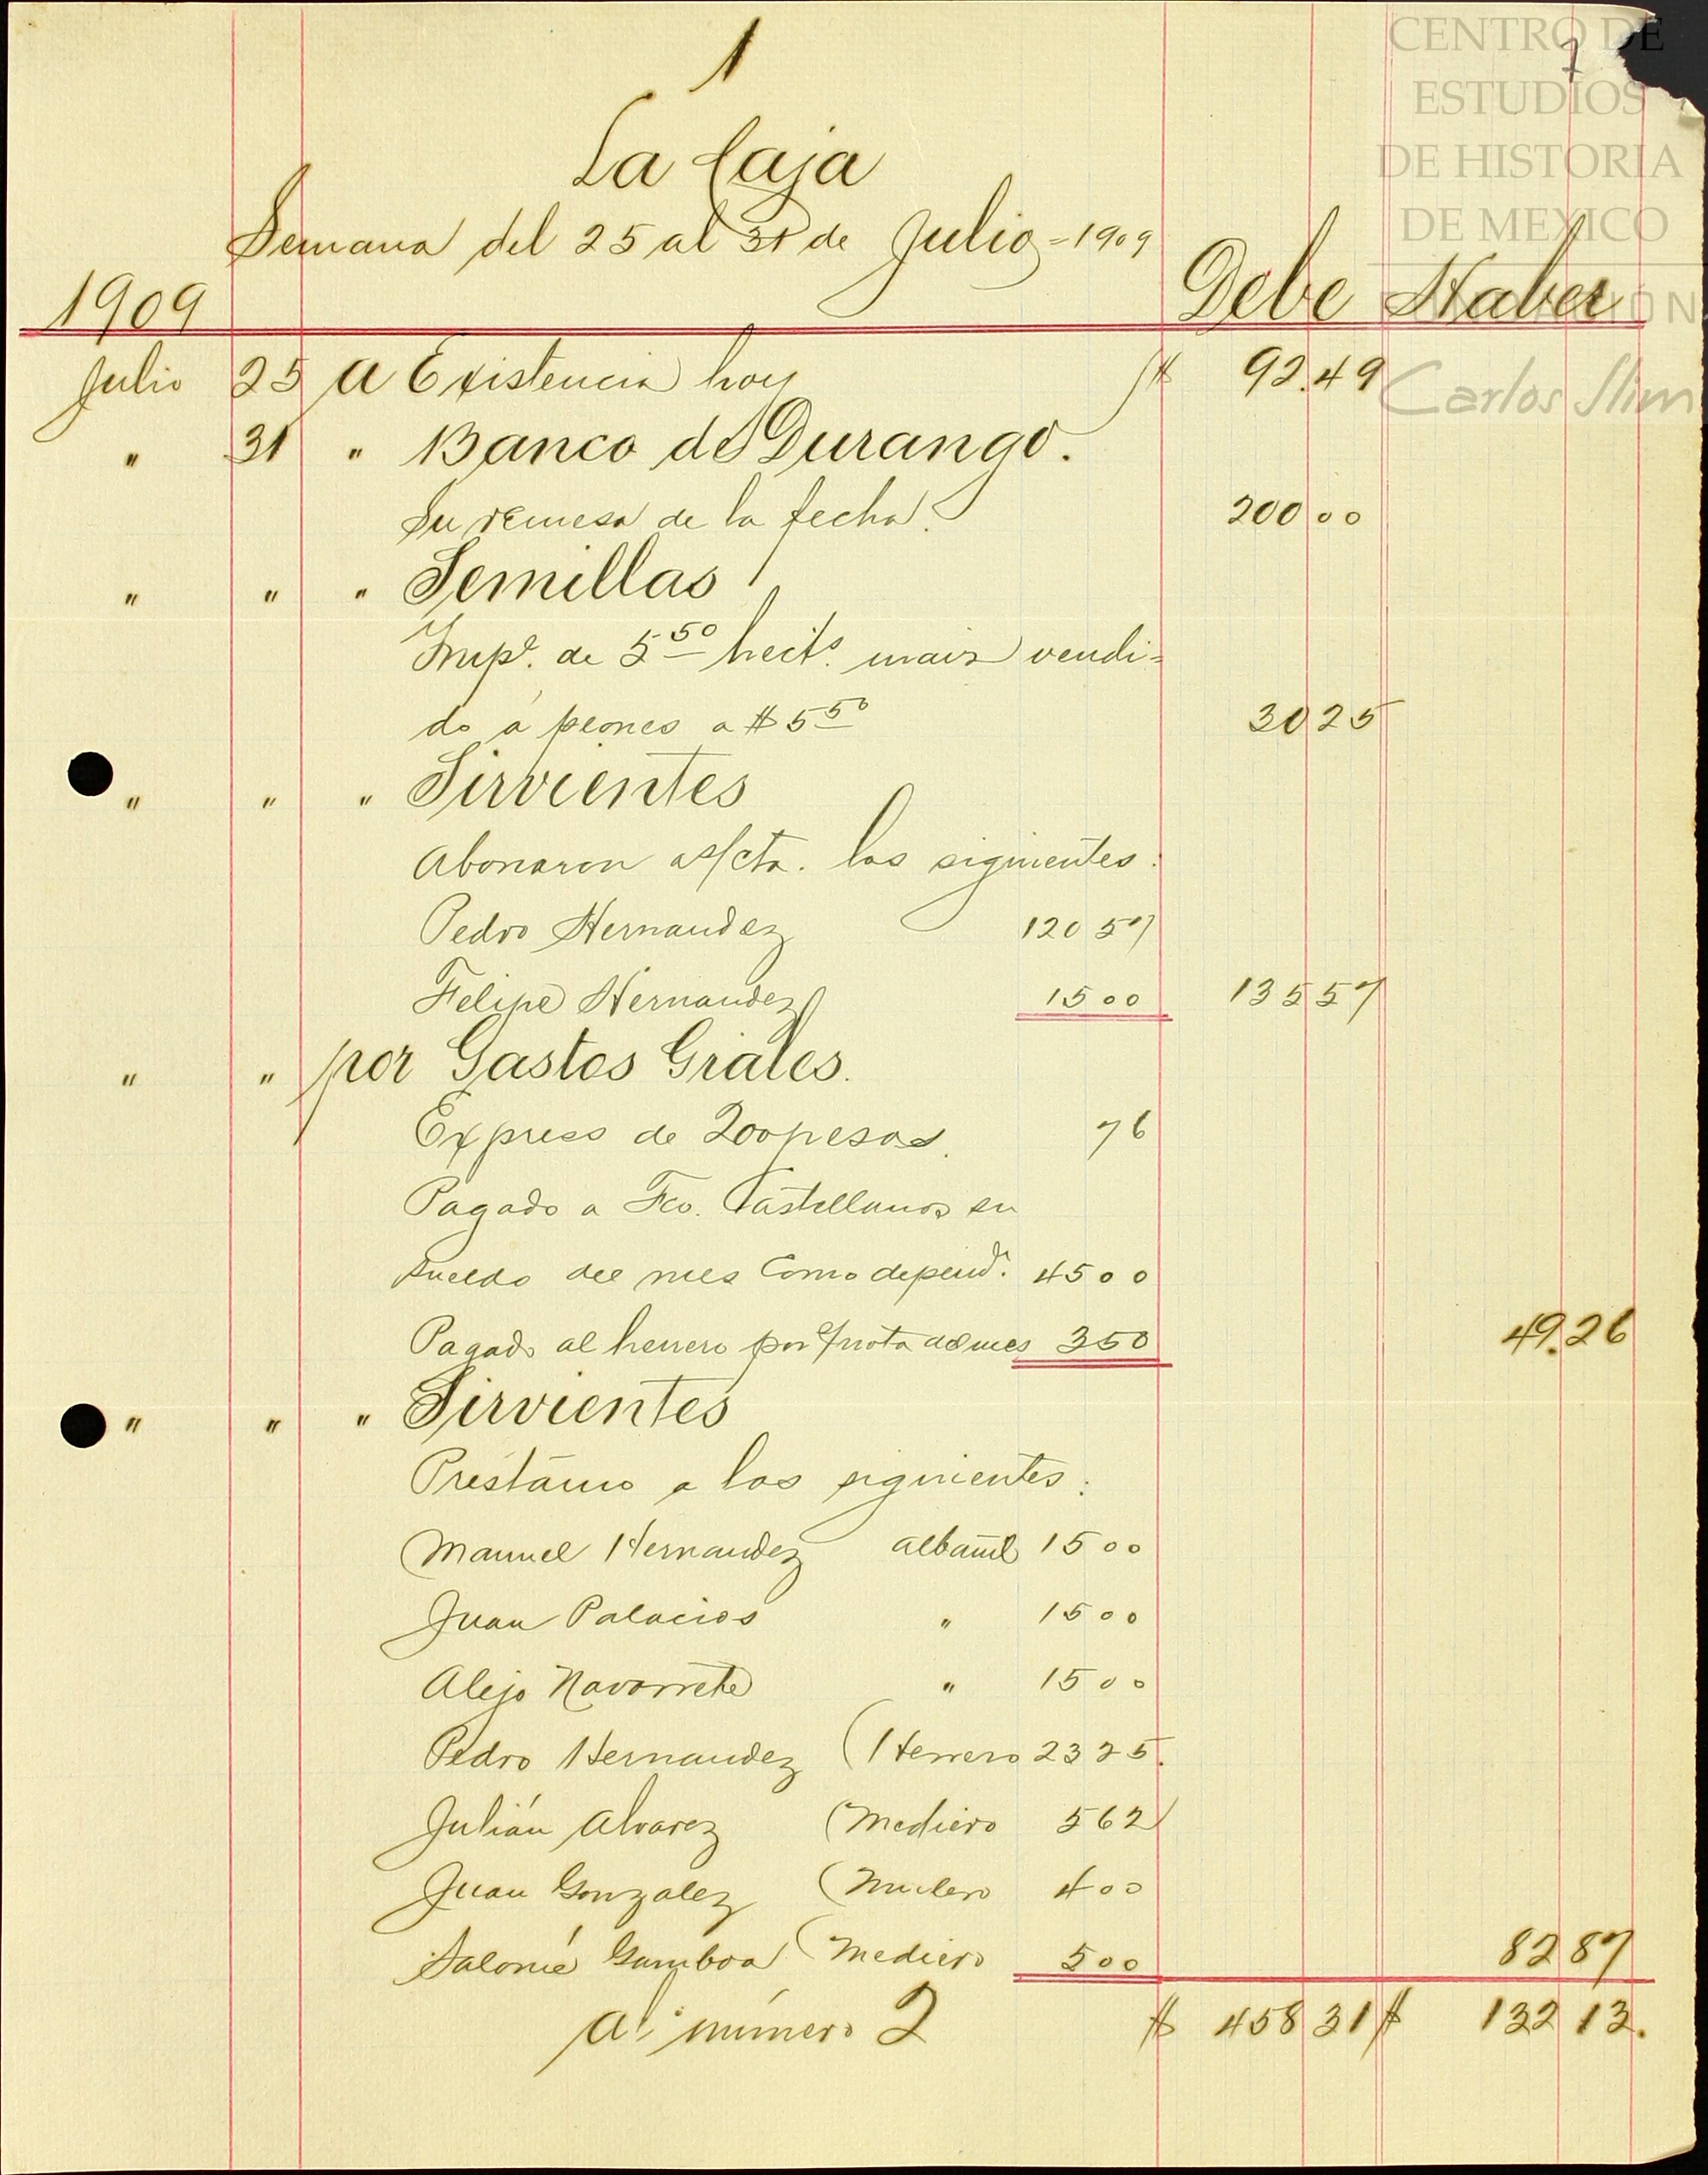 1
7
CENTRO DE
ESTUDIOS
DE HISTORIA
DE MEXICO
FUNDACION
Carlos Slim
La Caja
Semana del 25 al 31 de Julio = 1909
1909 Debe Haber
Julio 25 A Existencia hoy $ 92.49
" 31 " Banco de Durango.
Su remesa de la fecha. 200 00
" " " Semillas
Imp.e de 5 50 hects. maiz vendi=
do á peones a $ 5 50 30 25
" " " Sirvientes
Abonaron a s/cta. los siguientes:
Pedro Hernandez 120 57
Felipe Hernandez 15 00 135 57
" " por Gastos Grales.
Express de 200 pesos. 76
Pagado a Fco. Castellanos su
sueldo del mes como depend.e 45 00
Pagado al herrero por s/nota del mes 3 50 49.26
" " " Sirvientes
Prestámo a los siguientes:
Manuel Hernandez albañil 15 00
Juan Palacios " 15 00
Alejo Navarrete " 15 00
Pedro Hernandez (Herrero 23 25.
Julián Alvarez (Mediero 5 62
Juan Gonzalez (Mulero 4 00
Salomé Gamboa (Mediero 5 00 82 87
Al número 2 $ 458 31 $ 132 13.